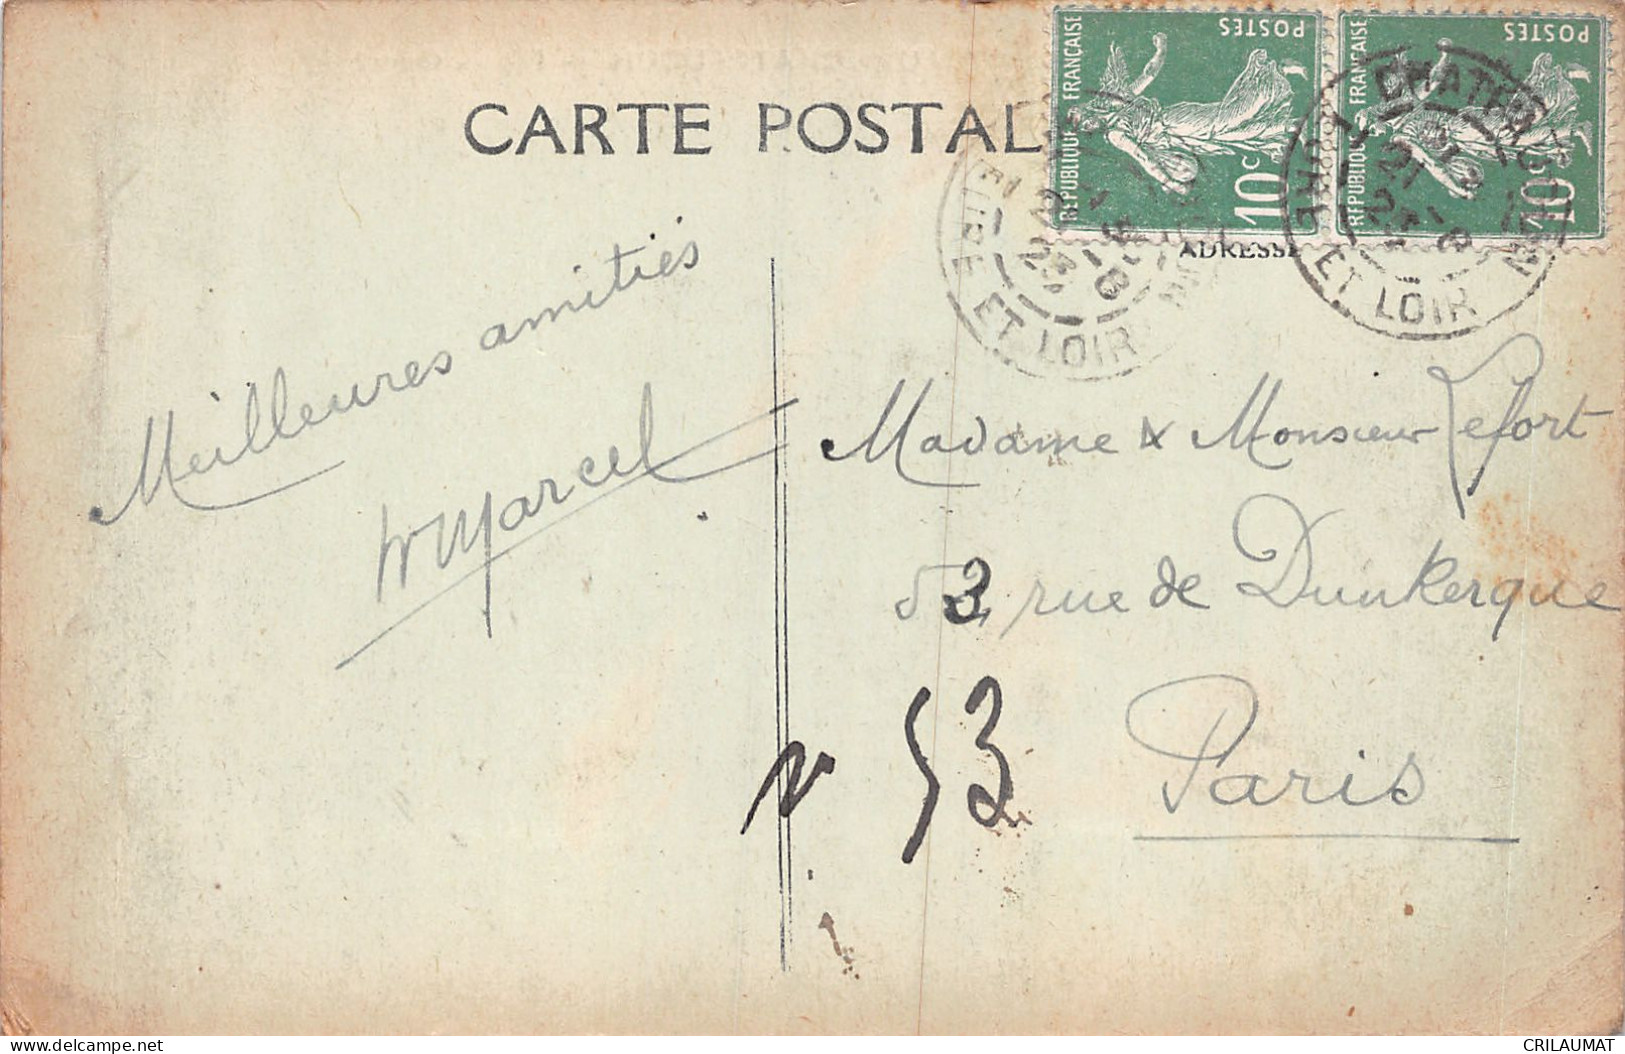 CARTE POSTALE
ADRESSE
RÉPUBLIQUE FRANÇAISE
POSTES
10c
RÉPUBLIQUE FRANÇAISE
POSTES
10c
EURE ET LOIR
CHATEAUDUN
EURE ET LOIR
Meilleures amitiés
Marcel
Madame & Monsieur Lefort
53 rue de Dunkerque
53
Paris
delcampe.net
CRILAUMAT